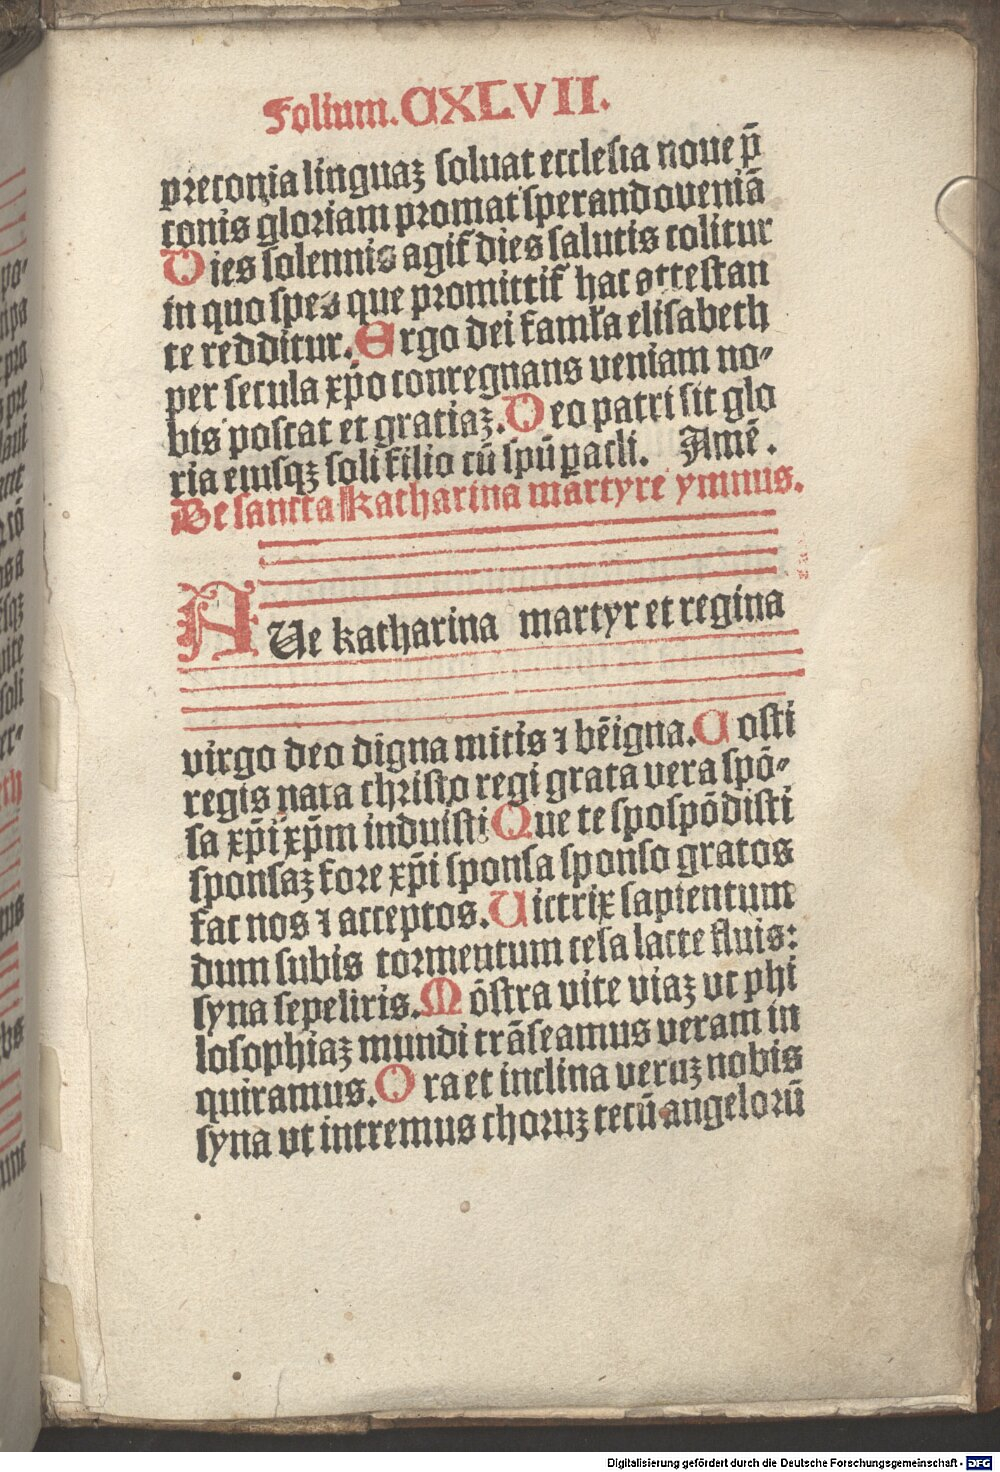 Folium. CXLVII.
preconia linguaꝫ soluat ecclesia noue p̄
conis gloriam promat sperando veniā
Dies solennis agit᷑ dies salutis colitur
in quo spes que promittit᷑ hac attestan
te redditur. Ergo dei famĺa elisabeth
per secula xp̄o conregnans veniam no⸗
bis poscat et gratiaꝫ. Deo patri sit glo
ria eiusqꝫ soli filio cū spū ꝑacli. Amē.
De sancta katharina martyre ymnus.
AUe katharina martyr et regina
virgo deo digna mitis ⁊ bēigna. Costi
regis nata christo regi grata vera spō⸗
sa xp̄i xp̄m induisti Que te spospōdisti
sponsaꝫ fore xp̄i sponsa sponso gratos
fac nos ⁊ acceptos. Uictrix sapientum
dum subis tormentum cesa lacte fluis:
syna sepeliris. Mōstra vite viaꝫ vt phi
losophiaꝫ mundi trāseamus veram in
quiramus. Ora et inclina veruꝫ nobis
syna vt intremus choruꝫ tecū angelorū
Digitalisierung gefördert durch die Deutsche Forschungsgemeinschaft - DFG